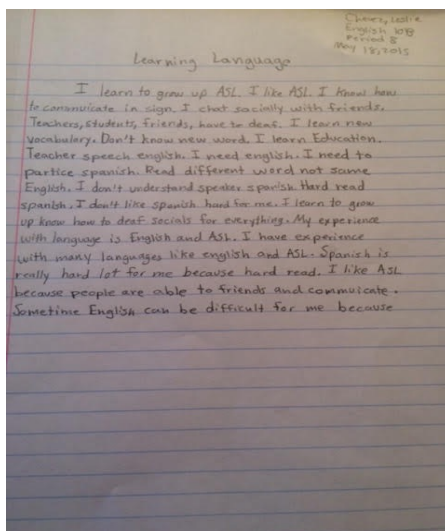 Chavez, Leslie
English 10B
Period 8
May 18, 2015
Learning Language
I learn to grow up ASL. I like ASL. I know how
to convuicate in sign. I chat socially with friends.
Teachers, students, friends, have to deaf. I learn new
vocabulary. Don't know new word. I learn Education.
Teacher speech english. I need english. I need to
partice spanish. Read different word not same
English. I don't understand speaker spanish. Hard read
spanish. I don't like spanish hard for me. I learn to grow
up know how to deaf socials for everything. My experience
with language is English and ASL. I have experience
with many languages like english and ASL. Spanish is
really hard lot for me because hard read. I like ASL
because people are able to friends and commuicate.
Sometime English can be difficult for me because